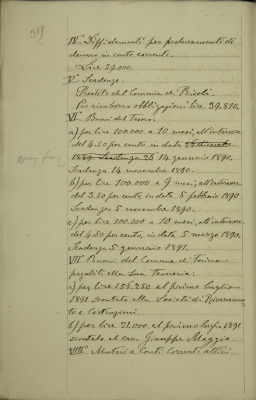 319
IV. Diffidamenti per reclamamenti di
denaro in conto corrente.
Lire 29.000.
V. Scadenze.
Prestito del Comune di
Per rimborso obbligazioni lire 39.810.
VI. Buoni del Tesoro:
a) per lire 100.000 a 10 mesi, all'interesse
del 4.50 per cento in data
1889. Scadenza 26 14 gennaio 1890.
Scadenza 14 novembre 1890.
b) per lire 100.000 a 9 mesi, all'interesse
del 3.50 per cento, in data 5 febbraio 1890
Scadenza 5 novembre 1890.
c) per lire 100.000 a 10 mesi, all'interesse
del 4.50 per cento, in data 5 marzo 1890.
Scadenza 5 gennaio 1891.
VII. Buoni del Comune di Torino
pagabili alla sua Tesoreria:
a) per lire 156.250 al primo luglio
1891 scontato alla Società di
to e Costruzioni
b) per lire 21.000 al primo luglio 1891
scontato al cav. Giuseppe Maggia
VIII. Mutui e Conti correnti attivi.